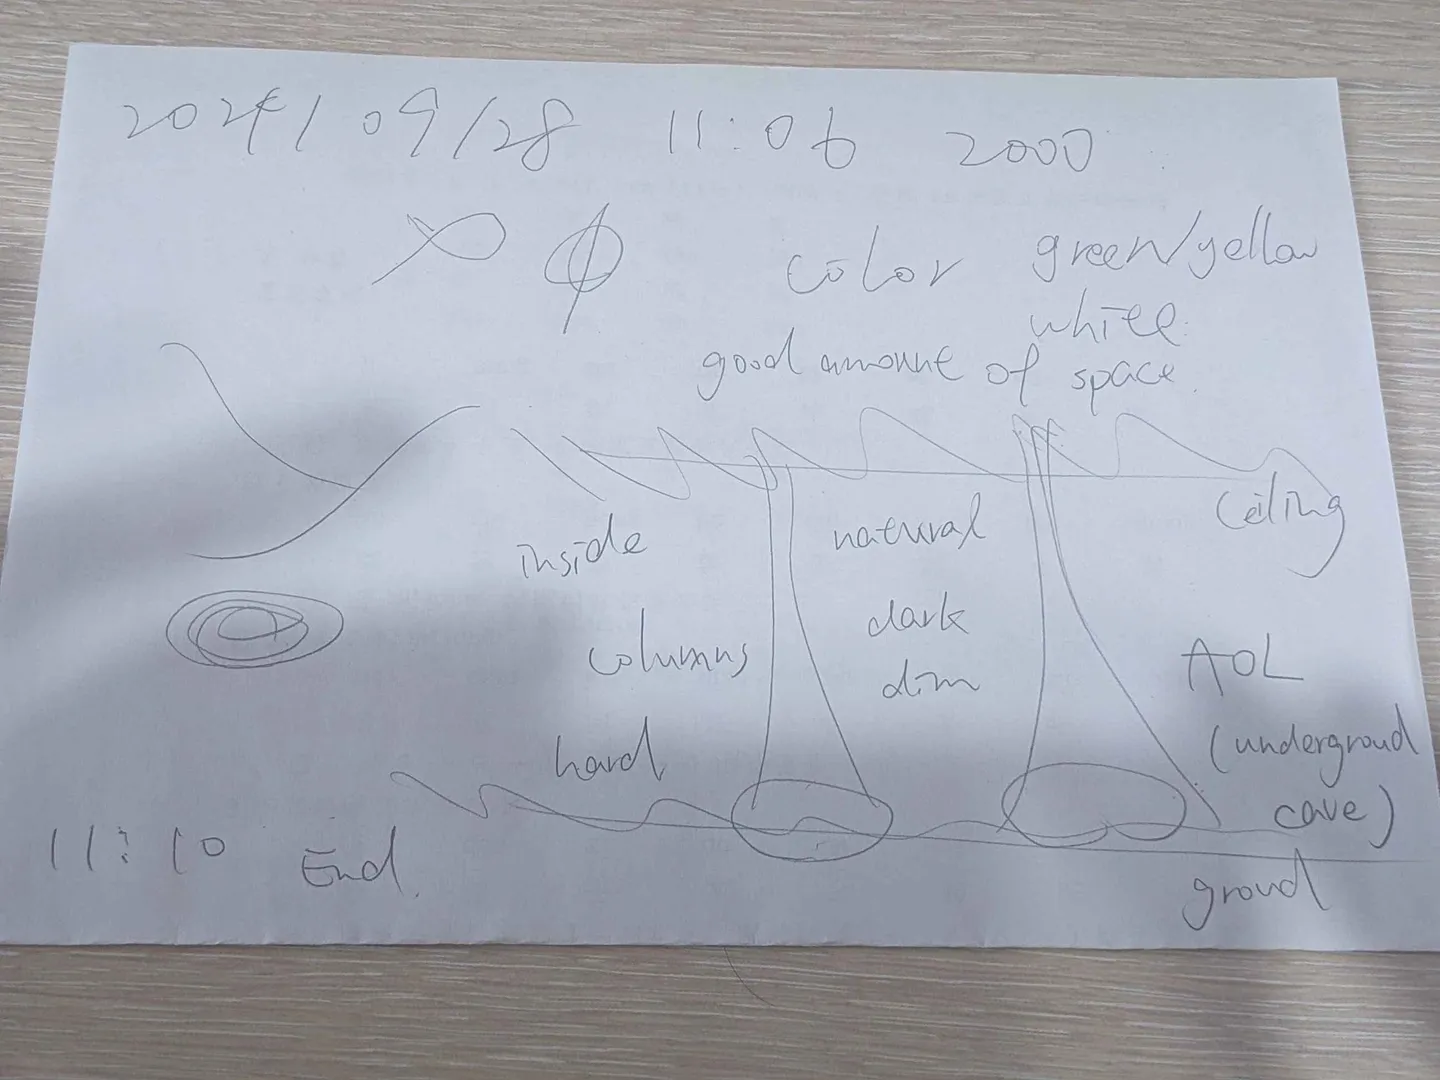 2024/09/28 11:06 2000
color green/yellow
white
good amount of space.
ceiling
inside natural
columns dark
dim
AOL
hard (undergroud
cave)
11:10 End.
groud